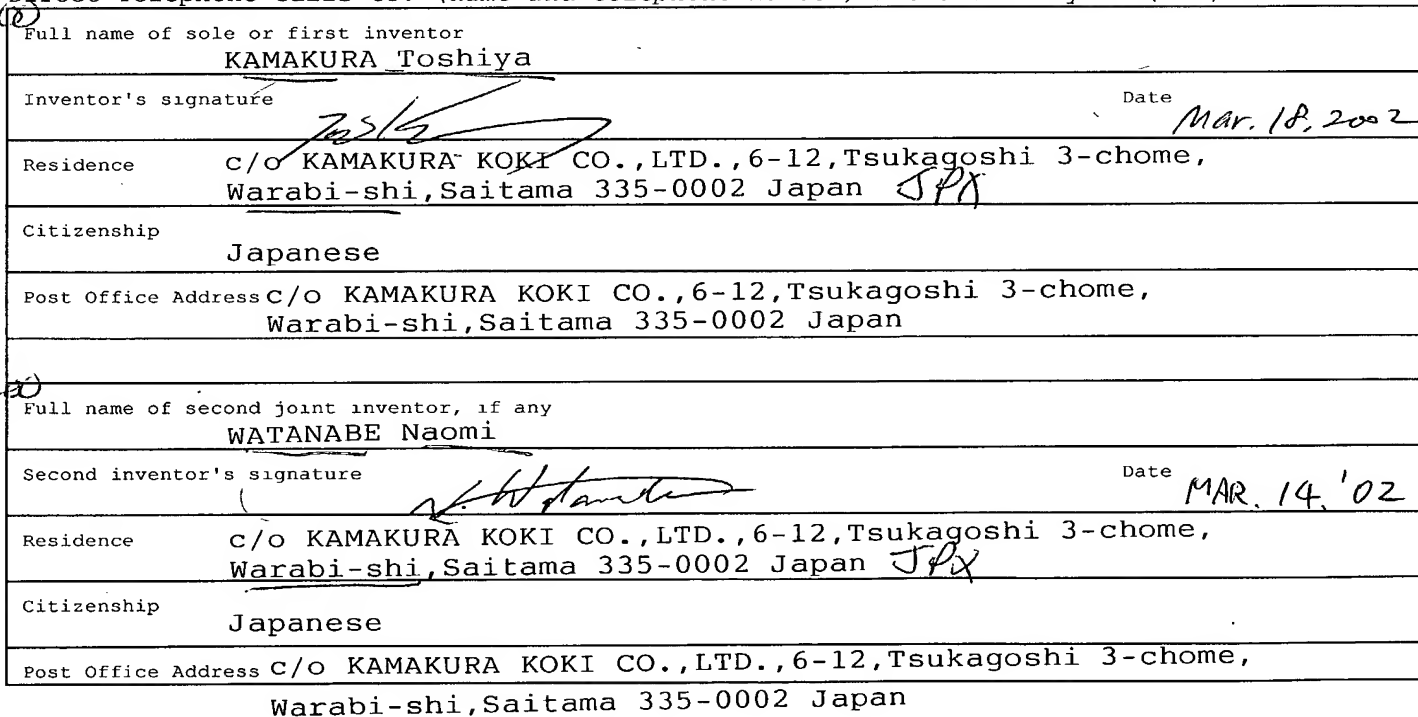 Full name of sole or first inventor
KAMAKURA Toshiya
Inventor's signature
Date Mar. 18, 2002
Residence c/o KAMAKURA KOKI CO.,LTD.,6-12,Tsukagoshi 3-chome,
Warabi-shi,Saitama 335-0002 Japan JPX
Citizenship
Japanese
Post Office Address C/O KAMAKURA KOKI CO.,6-12,Tsukagoshi 3-chome,
Warabi-shi,Saitama 335-0002 Japan
Full name of second joint inventor, if any
WATANABE Naomi
Second inventor's signature N. Watanabe
Date MAR. 14. '02
Residence c/o KAMAKURA KOKI CO.,LTD.,6-12,Tsukagoshi 3-chome,
Warabi-shi,Saitama 335-0002 Japan JPX
Citizenship
Japanese
Post Office Address C/O KAMAKURA KOKI CO.,LTD.,6-12,Tsukagoshi 3-chome,
Warabi-shi,Saitama 335-0002 Japan